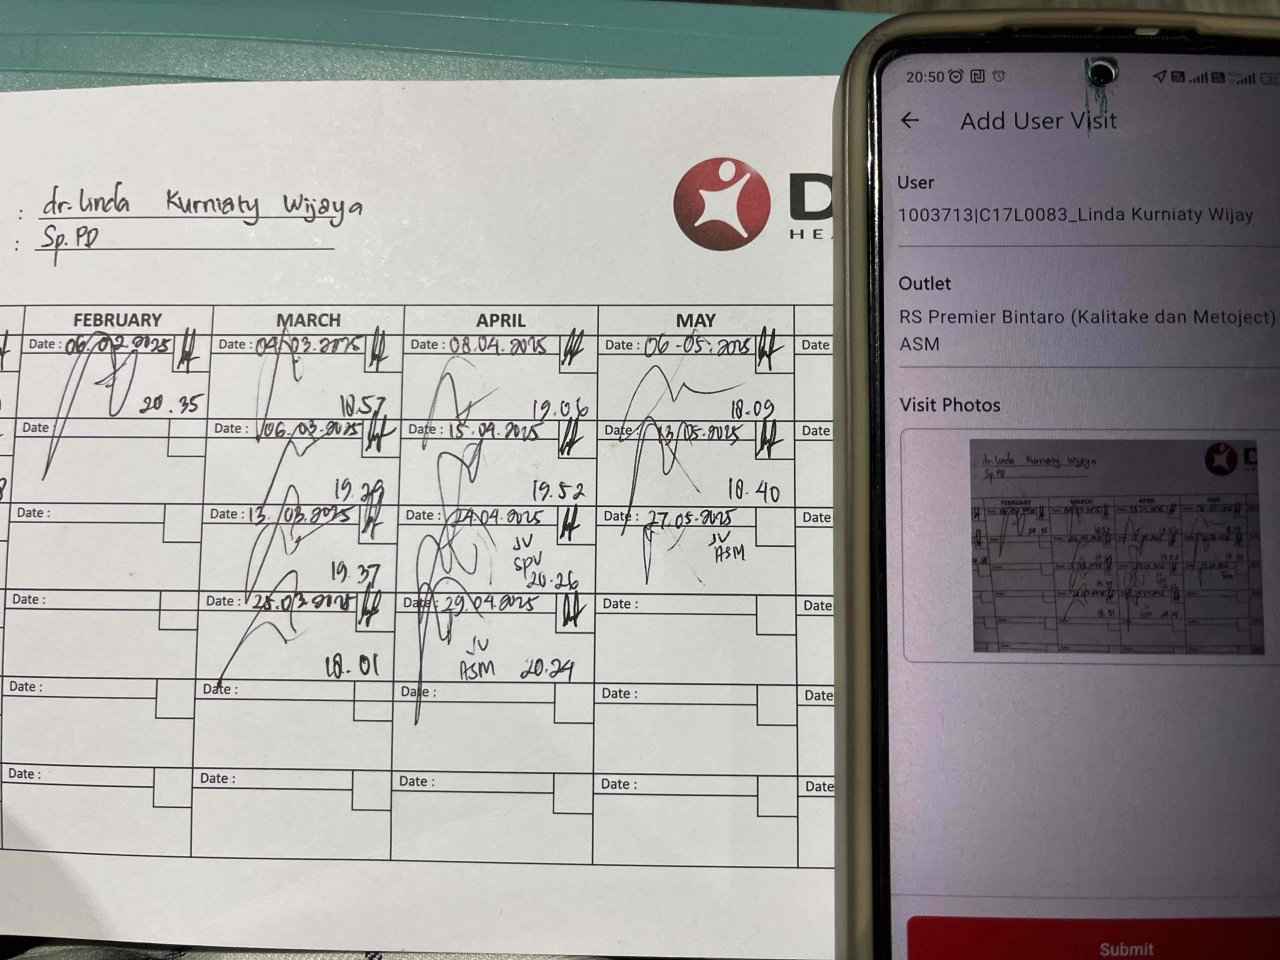 : dr. Linda Kurniaty Wijaya
: Sp.PD
D
HE
FEBRUARY MARCH APRIL MAY
Date : 06.02.2025 Date : 04.03.2025 Date : 08.04.2025 Date : 06-05-2025 Date
20.35 18.57 19.06 18.09
Date : Date : 06.03.2025 Date : 15.04.2025 Date : 13.05.2025 Date
19.29 19.52 18.40
Date : Date : 13.03.2025 Date : 24.04.2025 Date : 27.05.2025 Date
JV JV
SPV ASM
19.37 20.26
Date : Date : 25.03.2025 Date : 29.04.2025 Date : Date
JV
18.01 ASM 20.24
Date : Date : Date : Date : Date
Date : Date : Date : Date : Date
20:50
Add User Visit
User
1003713|C17L0083_Linda Kurniaty Wijay
Outlet
RS Premier Bintaro (Kalitake dan Metoject)
ASM
Visit Photos
dr. Linda Kurniaty Wijaya
Sp.PD
FEBRUARY MARCH APRIL
Submit